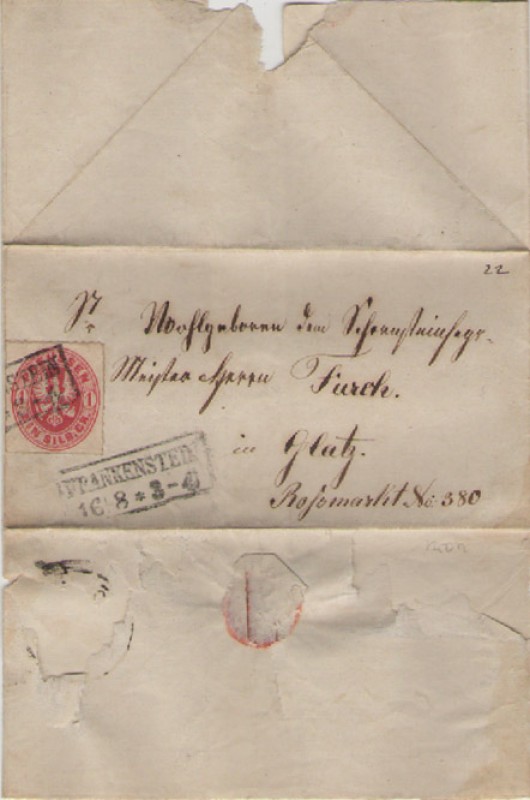 22
Sr Wohlgeboren dem Schornsteinfegr-
Meister Herrn Fürch.
in Glatz.
Roßmarkt No 380
1 1
EIN SILB.GR.
FRANKENSTEIN
16 8 * 3-4